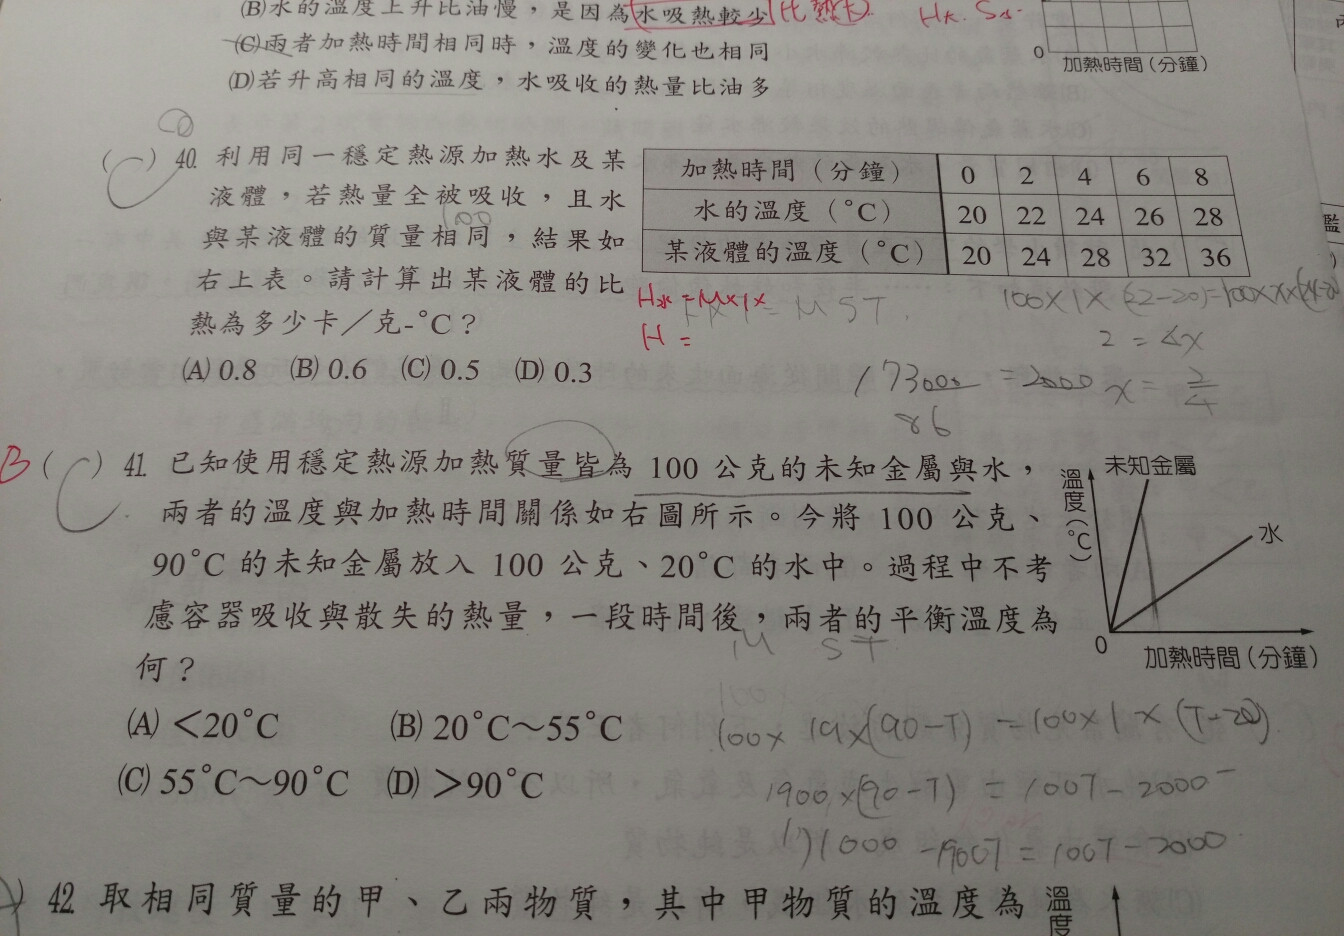 (B)水的溫度上升比油慢，是因為水吸熱較少 比熱大 H水 S大
(C)兩者加熱時間相同時，溫度的變化也相同
(D)若升高相同的溫度，水吸收的熱量比油多
0
加熱時間(分鐘)
( C ) 40. 利用同一穩定熱源加熱水及某
液體，若熱量全被吸收，且水
100
與某液體的質量相同，結果如
右上表。請計算出某液體的比
熱為多少卡／克-°C？
(A) 0.8 (B) 0.6 (C) 0.5 (D) 0.3
加熱時間（分鐘） 0 2 4 6 8
水的溫度（°C） 20 22 24 26 28
某液體的溫度（°C） 20 24 28 32 36
H水=M×1×
H =
= M S T
100×1×(22-20)=100×X×
2 = 4X
X = 2/4
=2000
86
B ( C ) 41. 已知使用穩定熱源加熱質量皆為 100 公克的未知金屬與水，
兩者的溫度與加熱時間關係如右圖所示。今將 100 公克、
90°C 的未知金屬放入 100 公克、20°C 的水中。過程中不考
慮容器吸收與散失的熱量，一段時間後，兩者的平衡溫度為
何？
(A) ＜20°C (B) 20°C～55°C
(C) 55°C～90°C (D) ＞90°C
溫度(°C)
未知金屬
水
0
加熱時間(分鐘)
M S T
100×19×(90-T) = 100×1×(T-20)
1900×(90-T) = 100T-2000
171000-1900T = 100T-2000
) 42. 取相同質量的甲、乙兩物質，其中甲物質的溫度為
溫度